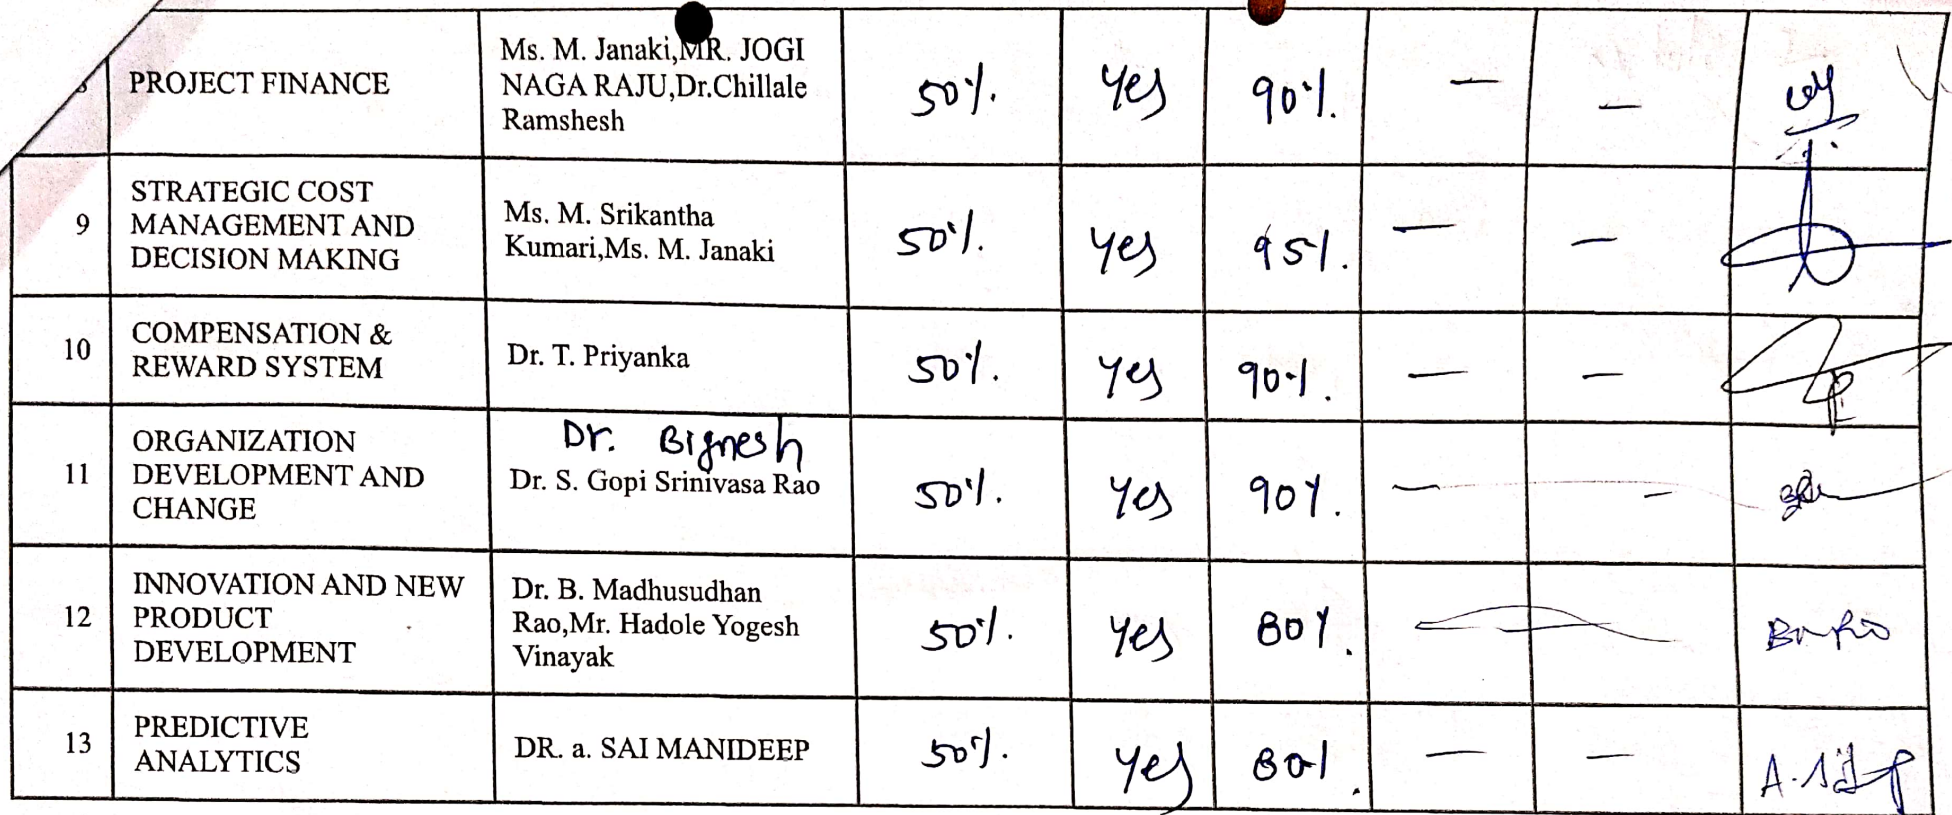 PROJECT FINANCE
Ms. M. Janaki,MR. JOGI
NAGA RAJU,Dr.Chillale
Ramshesh
50%.
Yes
90%.
—
—
9
STRATEGIC COST
MANAGEMENT AND
DECISION MAKING
Ms. M. Srikantha
Kumari,Ms. M. Janaki
50%.
Yes
95%.
—
—
10
COMPENSATION &
REWARD SYSTEM
Dr. T. Priyanka
50%.
Yes
90%.
—
—
11
ORGANIZATION
DEVELOPMENT AND
CHANGE
Dr. Bignesh
Dr. S. Gopi Srinivasa Rao
50%.
Yes
90%.
—
-
12
INNOVATION AND NEW
PRODUCT
DEVELOPMENT
Dr. B. Madhusudhan
Rao,Mr. Hadole Yogesh
Vinayak
50%.
Yes
80%.
13
PREDICTIVE
ANALYTICS
DR. a. SAI MANIDEEP
50%.
Yes
80%.
—
—